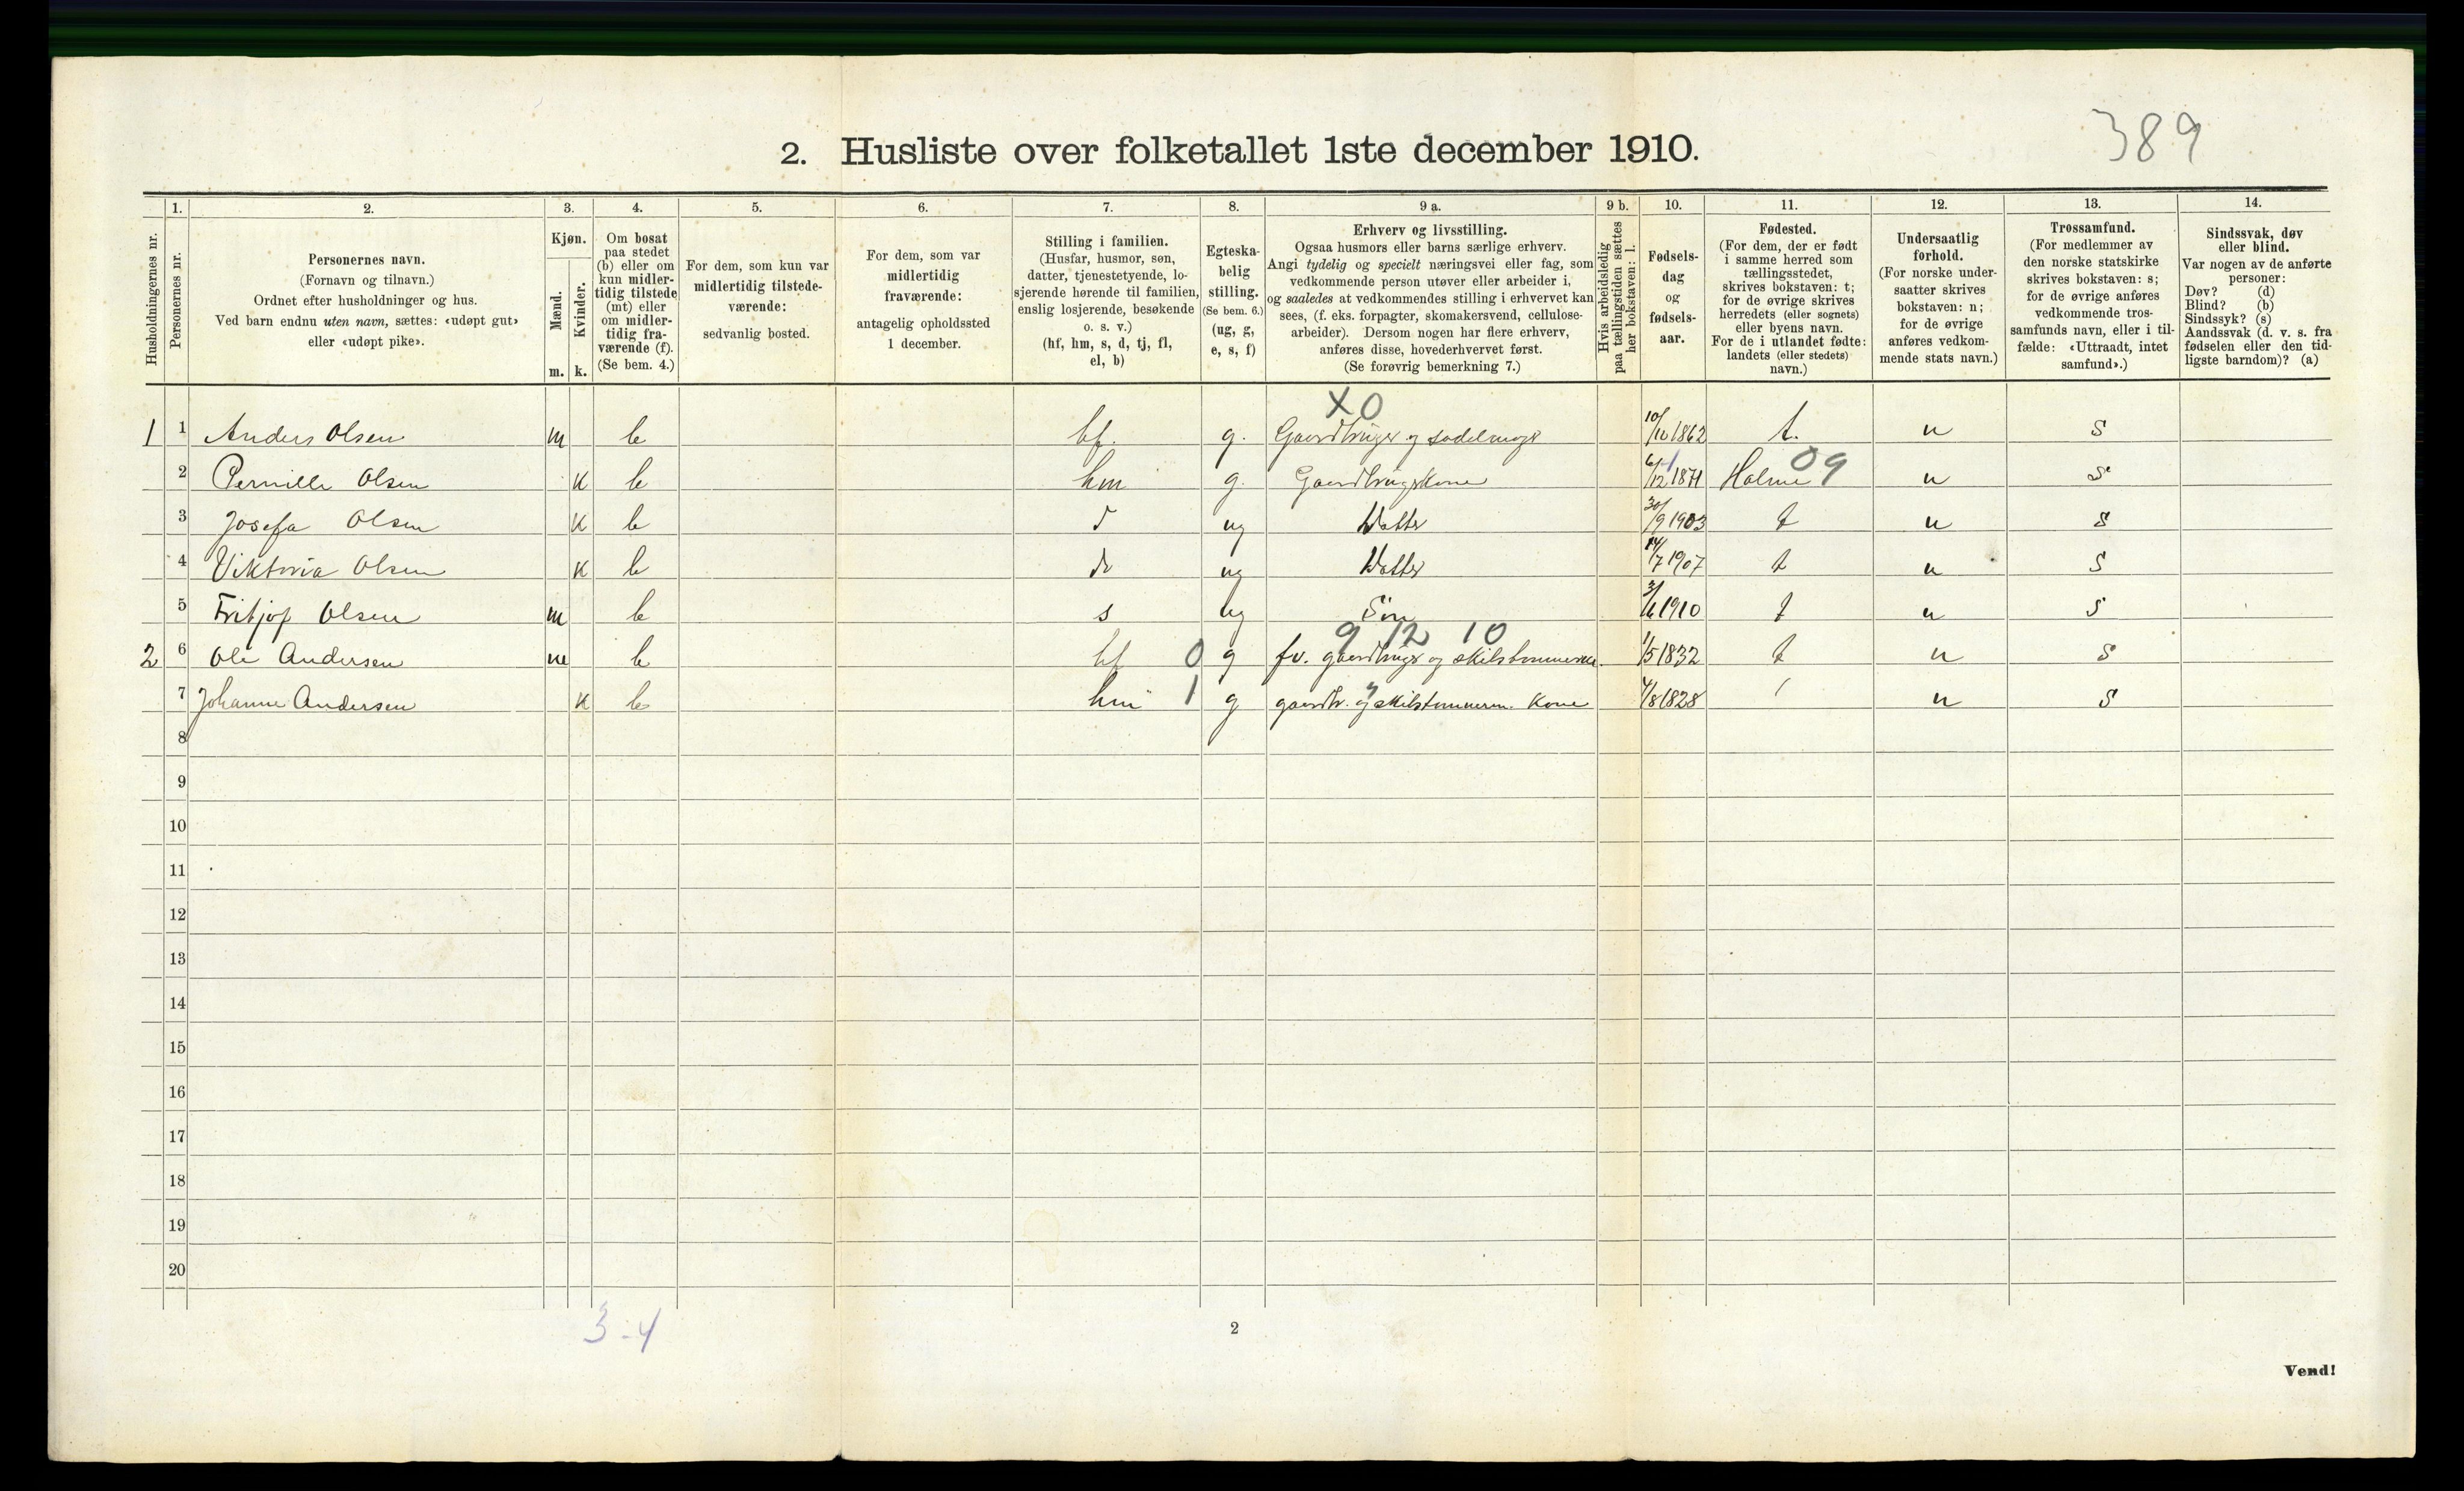 389
2. Husliste over folketallet 1ste december 1910.
Husholdningernes nr.
1.
Personernes nr.
2.
Personernes navn.
(Fornavn og tilnavn.)
Ordnet efter husholdninger og hus.
Ved barn endnu uten navn, sættes: «udøpt gut»
eller «udøpt pike».
3.
Kjøn.
Mænd.
Kvinder.
m. k.
4.
Om bosat
paa stedet
(b) eller om
kun midler-
tidig tilstede
(mt) eller
om midler-
tidig fra-
værende (f).
(Se bem. 4.)
5.
For dem, som kun var
midlertidig tilstede-
værende:
sedvanlig bosted.
6.
For dem, som var
midlertidig
fraværende:
antagelig opholdssted
1 december.
7.
Stilling i familien.
(Husfar, husmor, søn,
datter, tjenestetyende, lo-
sjerende hørende til familien,
enslig losjerende, besøkende
o. s. v.)
(hf, hm, s, d, tj, fl,
el, b)
8.
Egteska-
belig
stilling.
(Se bem. 6.)
(ug, g,
e, s, f)
9 a.
Erhverv og livsstilling.
Ogsaa husmors eller barns særlige erhverv.
Angi tydelig og specielt næringsvei eller fag, som
vedkommende person utøver eller arbeider i,
og saaledes at vedkommendes stilling i erhvervet kan
sees, (f. eks. forpagter, skomakersvend, cellulose-
arbeider). Dersom nogen har flere erhverv,
anføres disse, hovederhvervet først.
(Se forøvrig bemerkning 7.)
9 b.
Hvis arbeidsledig
paa tællingstiden sættes
her bokstaven: l.
10.
Fødsels-
dag
og
fødsels-
aar.
11.
Fødested.
(For dem, der er født
i samme herred som
tællingsstedet,
skrives bokstaven: t;
for de øvrige skrives
herredets (eller sognets)
eller byens navn.
For de i utlandet fødte:
landets (eller stedets)
navn.)
12.
Undersaatlig
forhold.
(For norske under-
saatter skrives
bokstaven: n;
for de øvrige
anføres vedkom-
mende stats navn.)
13.
Trossamfund.
(For medlemmer av
den norske statskirke
skrives bokstaven: s;
for de øvrige anføres
vedkommende tros-
samfunds navn, eller i til-
fælde: «Uttraadt, intet
samfund».)
14.
Sindssvak, døv
eller blind.
Var nogen av de anførte
personer:
Døv? (d)
Blind? (b)
Sindssyk? (s)
Aandssvak (d. v. s. fra
fødselen eller den tid-
ligste barndom)? (a)
X 0
1 1 Anders Olsen m b hf. g. Gaardbruger og sadelmager 10/10 1862 t. n s
2 Pernille Olsen k b hm g. Gaardbrugskone 6/12 1871 Holme 09 n s
3 Josefa Olsen k b d ug Datter 30/9 1903 t n s
4 Viktoria Olsen k b d ug Datter 14/7 1907 t n s
5 Fritjof Olsen m b s ug Søn 3/6 1910 t n s
9 12 10
2 6 Ole Andersen m b hf 0 g fv. gaardbruger og skibstømmerm. 1/5 1832 t n s
7 Johanne Andersen k b hm 1 g gaardbr. og skibstømmerm. kone 4/8 1828 n s
8
9
10
11
12
13
14
15
16
17
18
19
20
3-4
2
Vend!